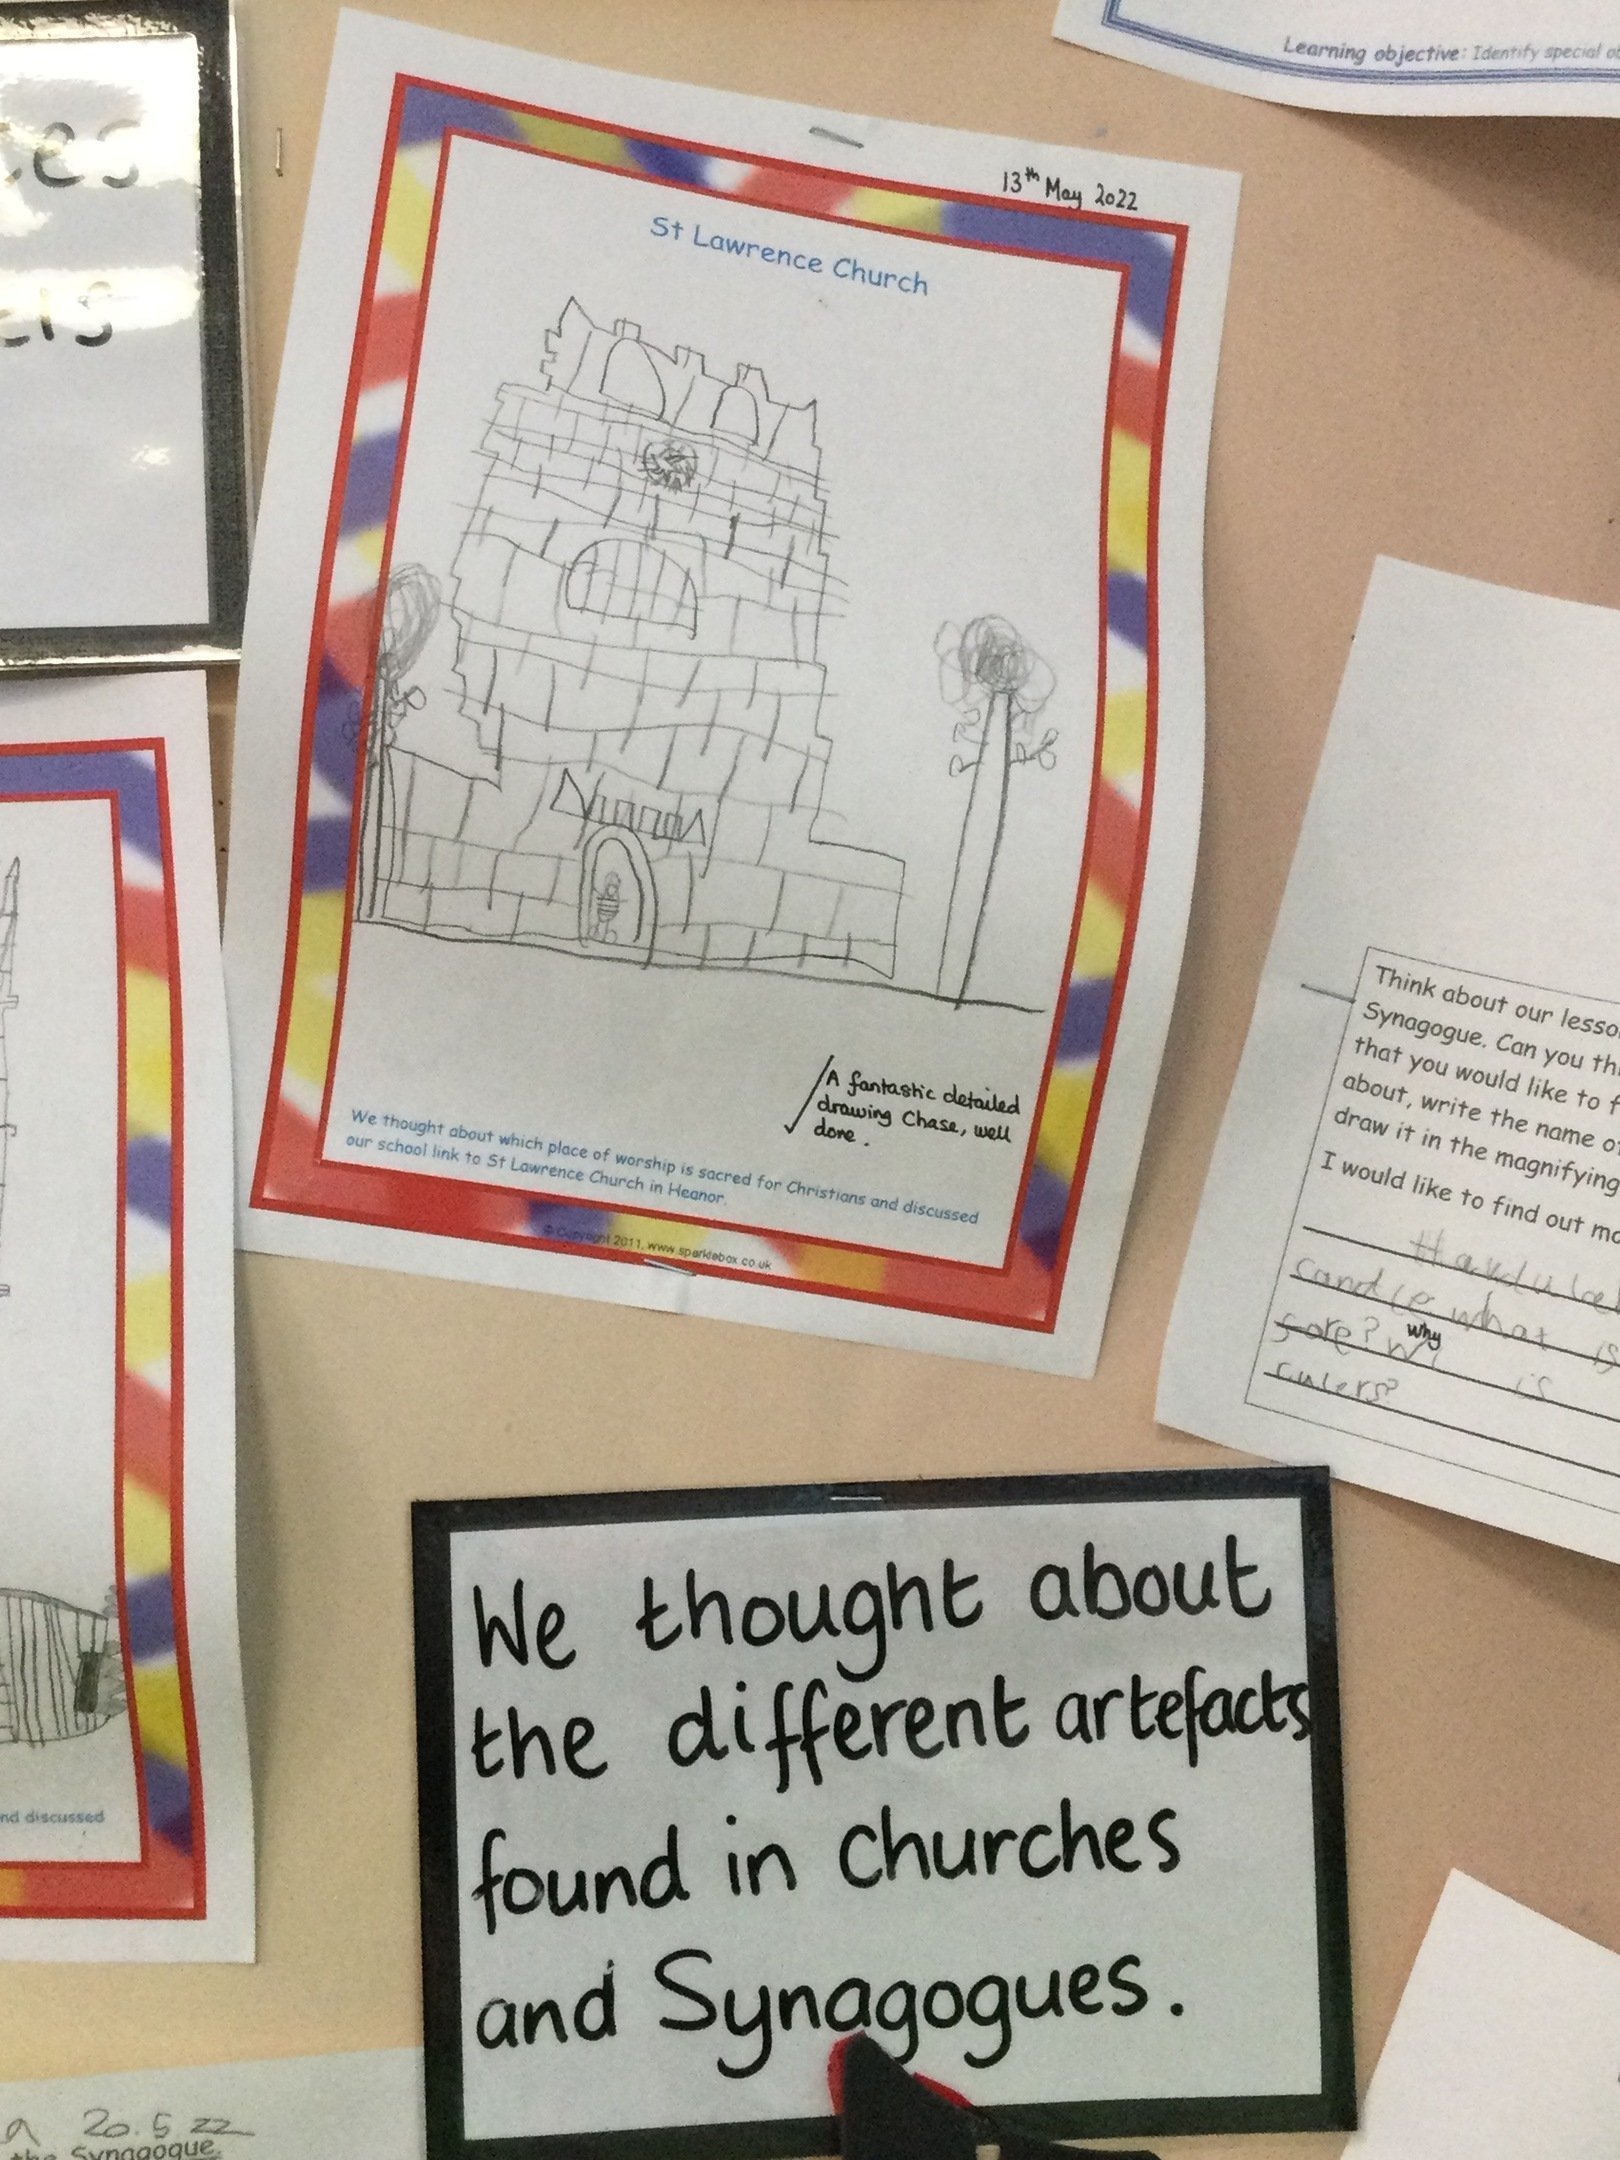 Learning objective: Identify special
13th May 2022
St Lawrence Church
A fantastic detailed
drawing Chase, well
done.
We thought about which place of worship is sacred for Christians and discussed
our school link to St Lawrence Church in Heanor.
© Copyright 2011, www.sparklebox.co.uk
Think about our
Synagogue. Can you
that you would like to
about, write the name
draw it in the magnifying
I would like to find out
what is
why
is
rulers?
discussed
We thought about
the different artefacts
found in churches
and Synagogues.
20.5.22
the Synagogue.